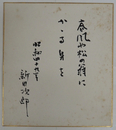 春風や松の緑に
かゝる身を
昭和四十九年
新田次郎